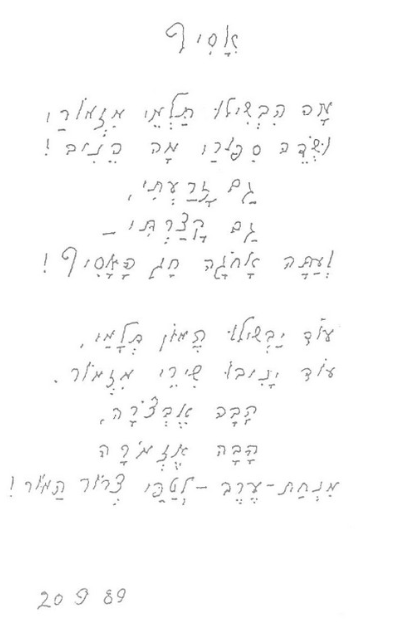 אָסִיף
מָה הִבְשִׁילוּ תַלְמֵי מִזְמוֹרַי,
וּשְׂדֵה סִפּוּרַי מָה הֵנִיב!
גַם זָרַעְתִי,
גַם קָצַרְתִּי –
וְעַתָּה אָחֹגָה חַג הָאָסִיף!
עוֹד יַבְשִׁילוּ הֲמוֹן תְּלָמַי,
עוֹד יָנִיבוּ שִׁירֵי מִזְמוֹר.
הָבָה אֶבְצֹרָה,
הָבָה אֶזְמֹרָה
מִנְחַת-עֶרֶב – לְטַפַּי צְרוֹר הַמּוֹר!
20 9 89